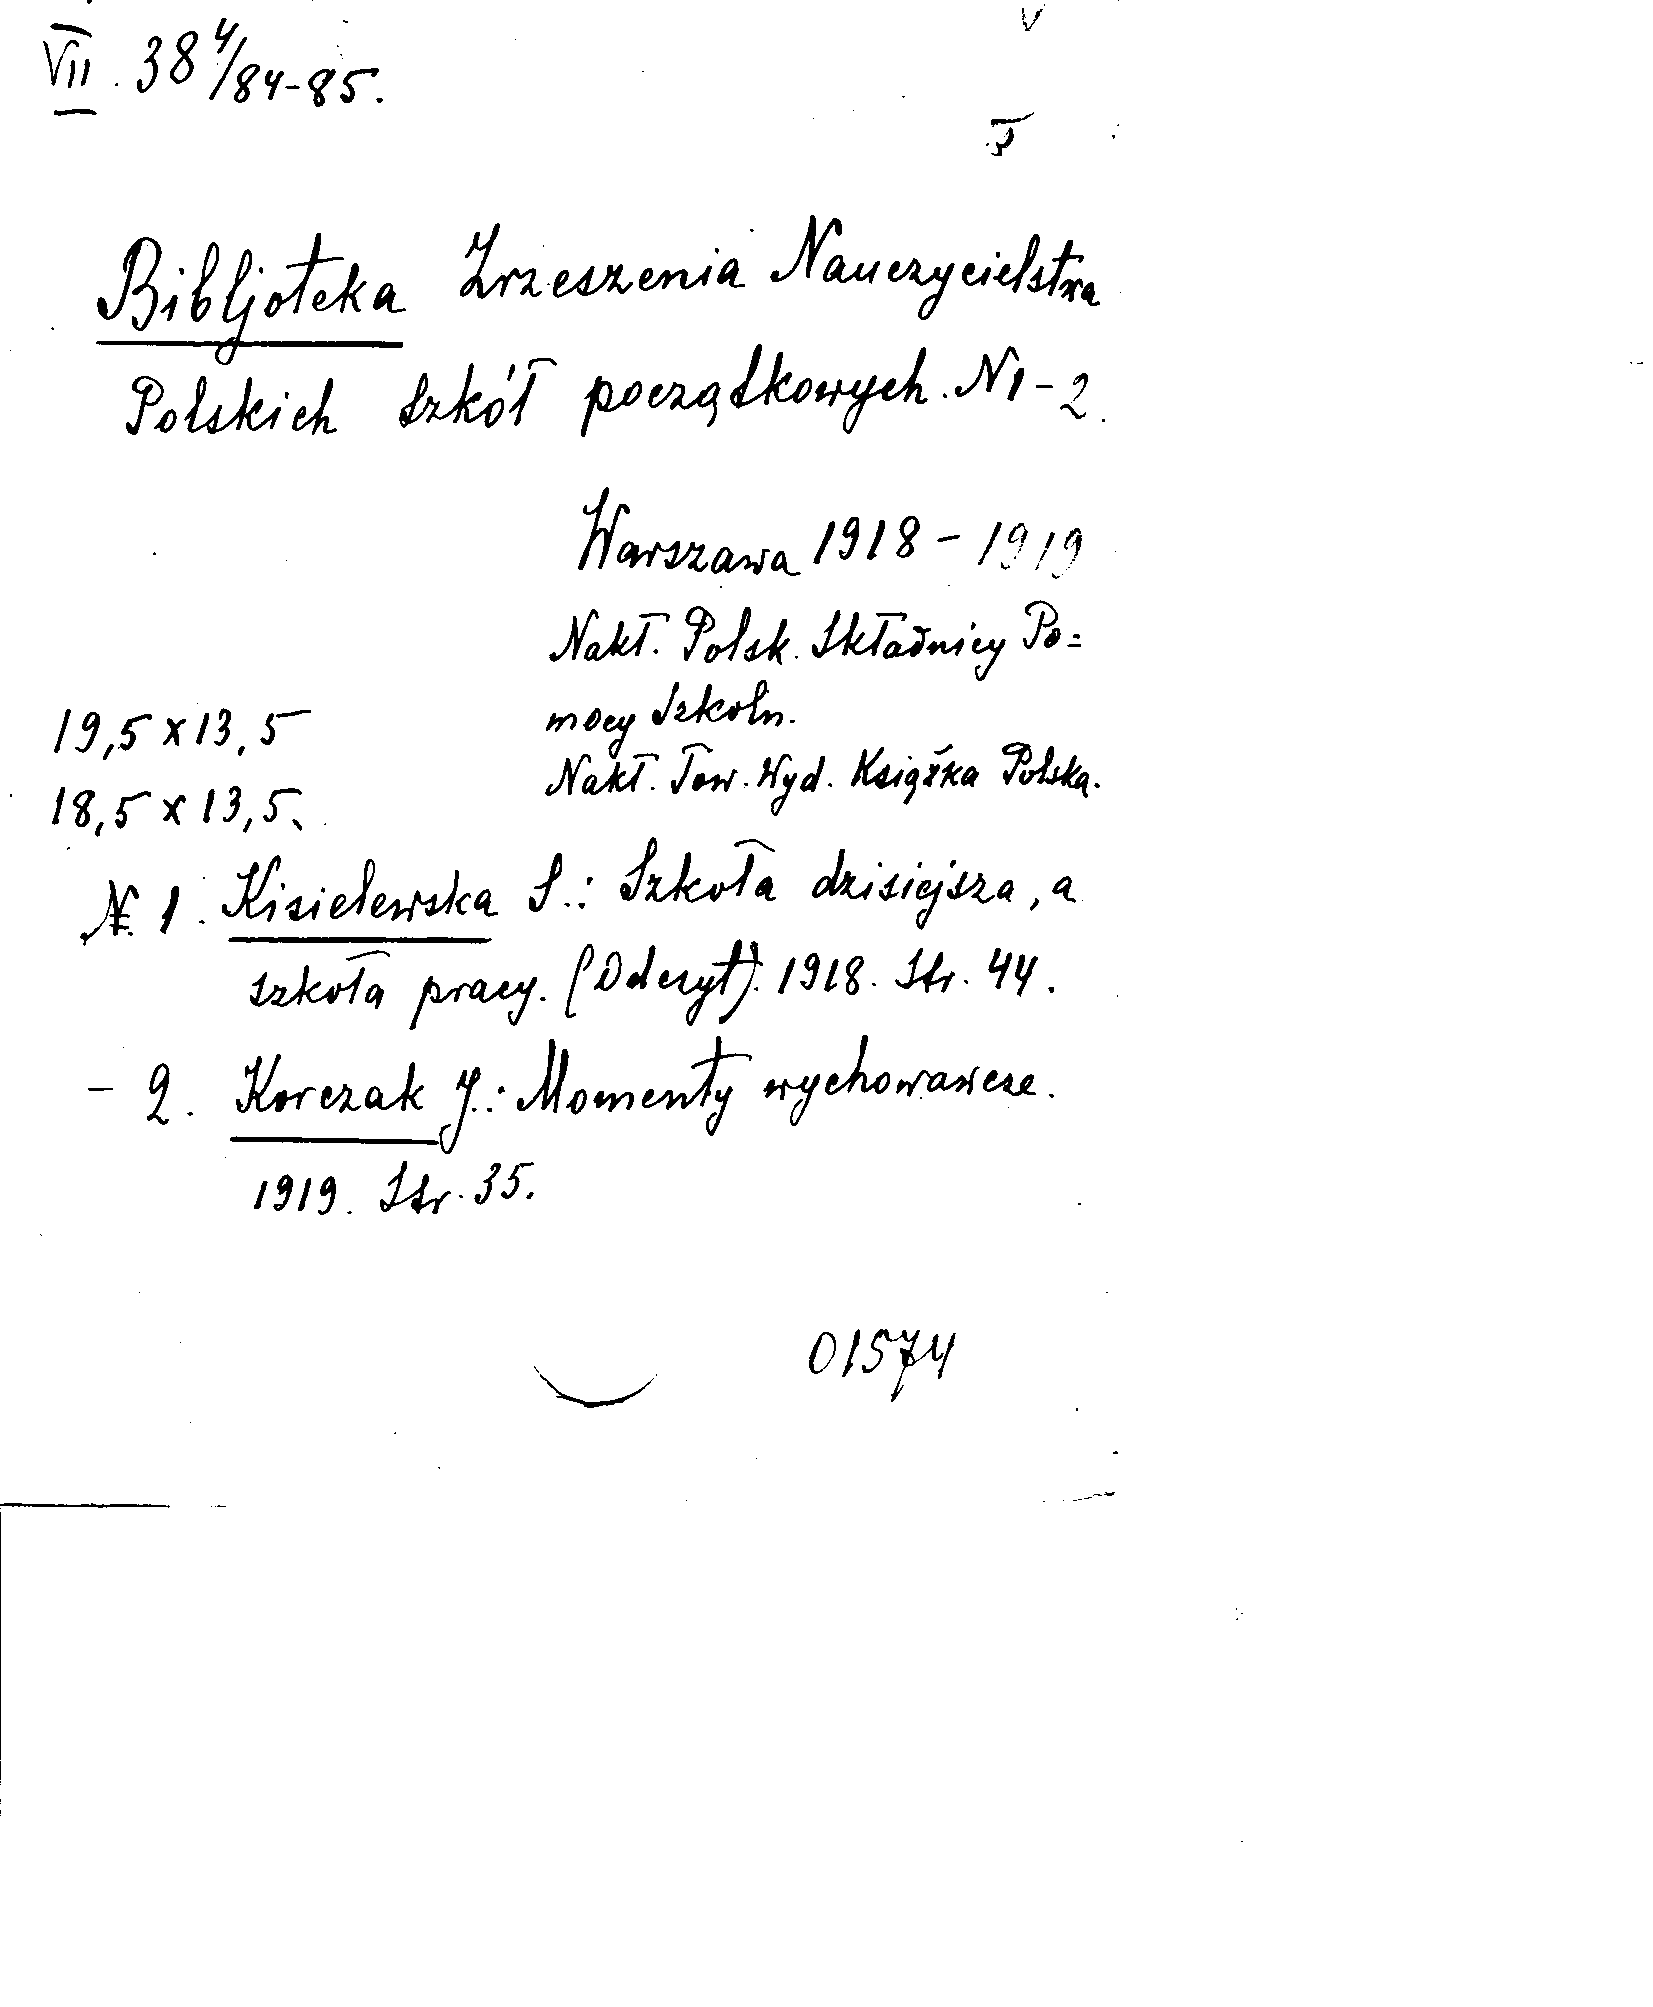 VII. 38 4/84-85.
Bibljoteka Zrzeszenia Nauczycielstwa
Polskich szkół początkowych. N 1-2.
Warszawa 1918 - 1919
Nakł. Polsk. Składnicy Po=
mocy Szkoln.
19,5 x 13,5
Nakł. Tow. Wyd. Książka Polska.
18,5 x 13,5.
№ 1. Kisielewska S.: Szkoła dzisiejsza, a
szkoła pracy. (Odczyt). 1918. Str. 44.
- 2. Korczak J.: Momenty wychowawcze.
1919. Str. 35.
01574